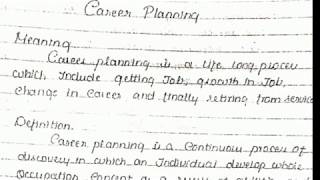 Career Planning
Meaning
Career planning is a life long process
which include getting Job, growth in Job,
change in Career and finally retiring from service
Definition.
Career planning is a Continuous process of
discovery in which an Individual develop whole
Occupation Concept as a result of